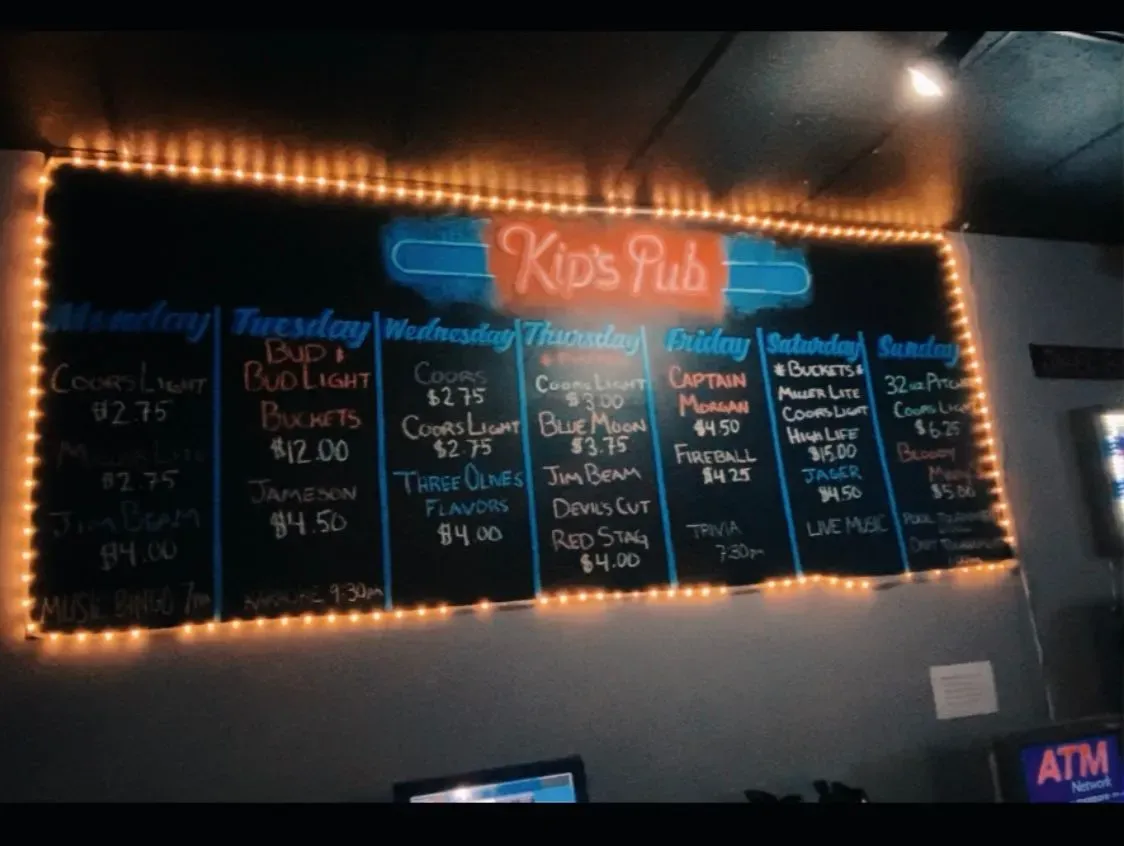 Kip's Pub
Monday
COORS LIGHT
$2.75
MILLER LITE
$2.75
JIM BEAM
$4.00
MUSIC BINGO 7pm
Tuesday
BUD &
BUD LIGHT
BUCKETS
$12.00
JAMESON
$4.50
KARAOKE 9:30pm
Wednesday
COORS
$2.75
COORS LIGHT
$2.75
THREE OLIVES
FLAVORS
$4.00
Thursday
COORS LIGHT
$3.00
BLUE MOON
$3.75
JIM BEAM
DEVILS CUT
RED STAG
$4.00
Friday
CAPTAIN
MORGAN
$4.50
FIREBALL
$4.25
TRIVIA
7:30pm
Saturday
*BUCKETS*
MILLER LITE
COORS LIGHT
HIGH LIFE
$15.00
JAGER
$4.50
LIVE MUSIC
Sunday
32oz PITCHER
COORS LIGHT
$6.25
BLOODY
MARY'S
$5.00
POOL TOURNAMENT
DART TOURNAMENT
ATM
Network